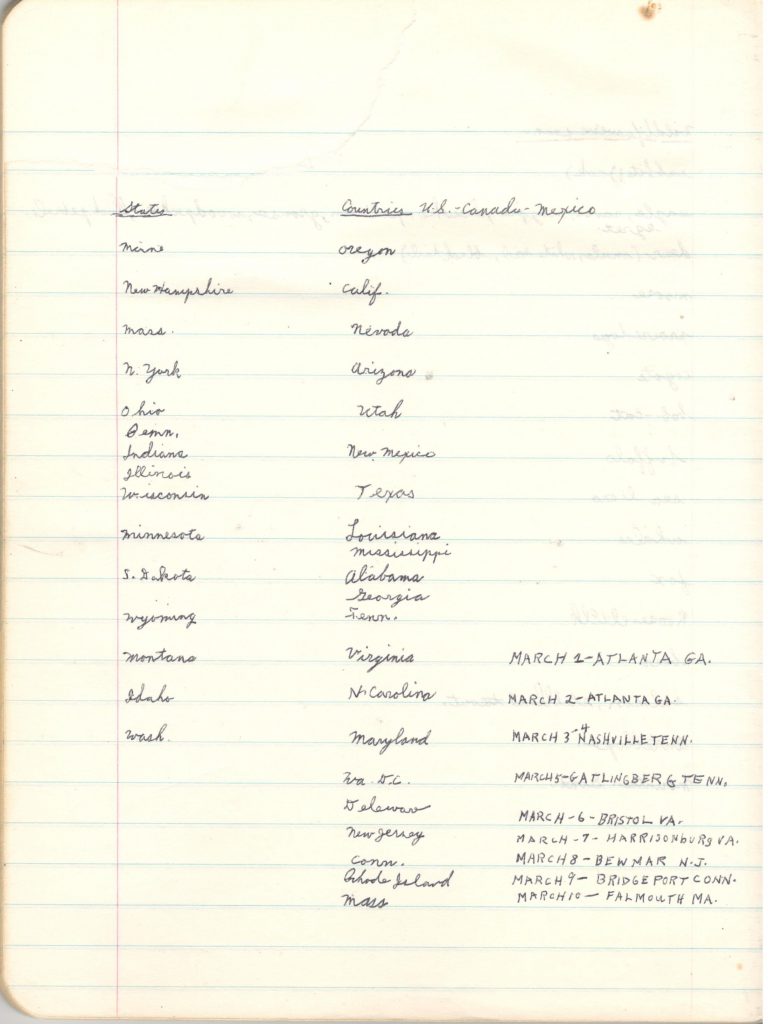 States Countries U.S.-Canada-Mexico
Maine Oregon
New Hampshire Calif.
Mass. Nevada
N. York Arizona
Ohio Utah
Penn.
Indiana New Mexico
Illinois
Wisconsin Texas
Minnesota Louisiana
Mississippi
S. Dakota Alabama
Georgia
Wyoming Tenn.
Montana Virginia MARCH 1-ATLANTA GA.
Idaho N. Carolina MARCH 2-ATLANTA GA.
Wash. Maryland MARCH 3-4 NASHVILLE TENN.
Wa. D.C. MARCH 5-GATLINGBERG TENN.
Delaware
MARCH-6-BRISTOL VA.
New Jersey MARCH-7-HARRISONBURG VA.
Conn. MARCH 8-BEWMAR N.J.
Rhode Island MARCH 9-BRIDGEPORT CONN.
Mass MARCH 10-FALMOUTH MA.